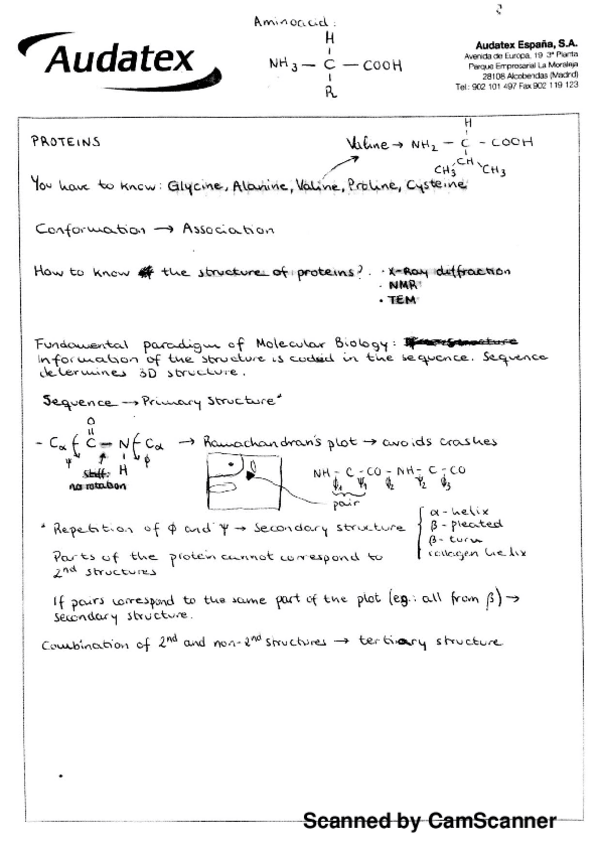 Aminoacid:
H
NH3 – C – COOH
R
Audatex
Audatex España, S.A.
Avenida de Europa, 19 3ª Planta
Parque Empresarial La Moraleja
28108 Alcobendas (Madrid)
Tel: 902 101 497 Fax 902 119 123
PROTEINS
H
Valine → NH2 – C – COOH
CH
CH3 CH3
You have to know: Glycine, Alanine, Valine, Proline, Cysteine
Conformation → Association
How to know the structure of proteins? · X-Ray diffraction
· NMR
· TEM
Fundamental paradigm of Molecular Biology:
Information of the structure is coded in the sequence. Sequence
determines 3D structure.
Sequence → Primary structure*
O
- Cα C – N Cα → Ramachandran's plot → avoids crashes
ψ H ϕ
stiff:
no rotation
NH – C – CO – NH – C – CO
ϕ1 ψ1 ϕ2 ψ2 ϕ3
pair
* Repetition of ϕ and ψ → Secondary structure
α-helix
β-pleated
β-turn
collagen helix
Parts of the protein cannot correspond to
2nd structures
If pairs correspond to the same part of the plot (eg.: all from β) →
secondary structure.
Combination of 2nd and non-2nd structures → tertiary structure
Scanned by CamScanner